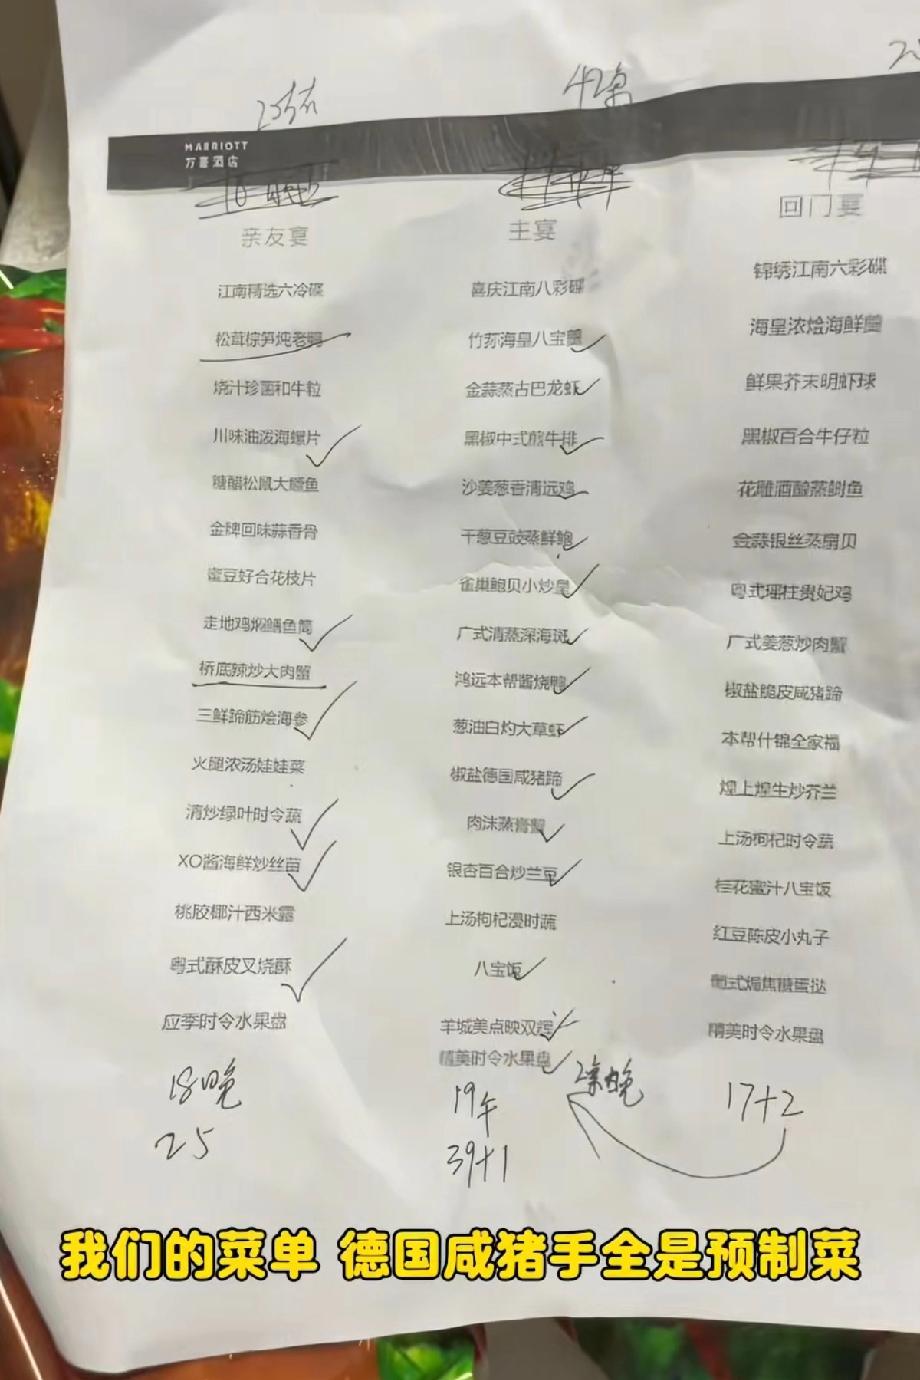 42桌
MARRIOTT
万豪酒店
亲友宴
江南精选六冷碟
松茸棕笋炖老鸭
烧汁珍菌和牛粒
川味油泼海螺片
糖醋松鼠大鳜鱼
金牌回味蒜香骨
蜜豆好合花枝片
走地鸡焖鲷鱼筒
桥底辣炒大肉蟹
三鲜蹄筋烩海参
火腿浓汤娃娃菜
清炒绿叶时令蔬
XO酱海鲜炒丝苗
桃胶椰汁西米露
粤式酥皮叉烧酥
应季时令水果盘
18晚
25
主宴
喜庆江南八彩碟
竹荪海皇八宝羹
金蒜蒸古巴龙虾
黑椒中式煎牛排
沙姜葱香清远鸡
干葱豆豉蒸鲜鲍
雀巢鲍贝小炒皇
广式清蒸深海斑
鸿远本帮酱烧鸭
葱油白灼大草虾
椒盐德国咸猪蹄
肉沫蒸膏蟹
银杏百合炒兰豆
上汤枸杞浸时蔬
八宝饭
羊城美点映双辉
精美时令水果盘
19午
39+1
回门宴
锦绣江南六彩碟
海皇浓烩海鲜羹
鲜果芥末明虾球
黑椒百合牛仔粒
花雕酒酿蒸鲥鱼
金蒜银丝蒸扇贝
粤式瑶柱贵妃鸡
广式姜葱炒肉蟹
椒盐脆皮咸猪蹄
本帮什锦全家福
煌上煌生炒芥兰
上汤枸杞时令蔬
桂花蜜汁八宝饭
红豆陈皮小丸子
葡式焗焦糖蛋挞
精美时令水果盘
17+2
我们的菜单 德国咸猪手全是预制菜